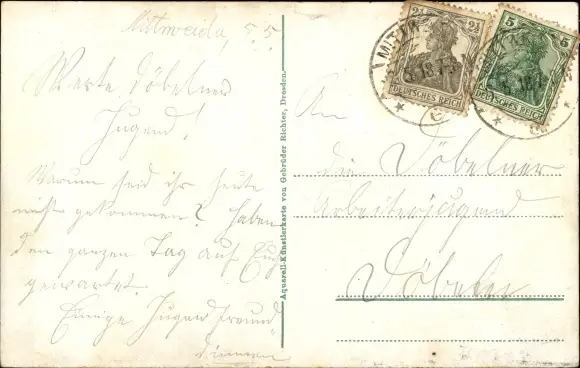 Mittweida, 5.5.
Werte Döbelner
Jugend!
Warum seid ihr heute
nicht gekommen? Haben
den ganzen Tag auf Euch
gewartet.
Einige Jugendfreund-
innen
Aquarell-Künstlerkarte von Gebrüder Richter, Dresden.
2½ 2½
DEUTSCHES REICH
5 5
DEUTSCHES REICH
MITTW
An
die Döbelner
Arbeiterjugend
Döbeln